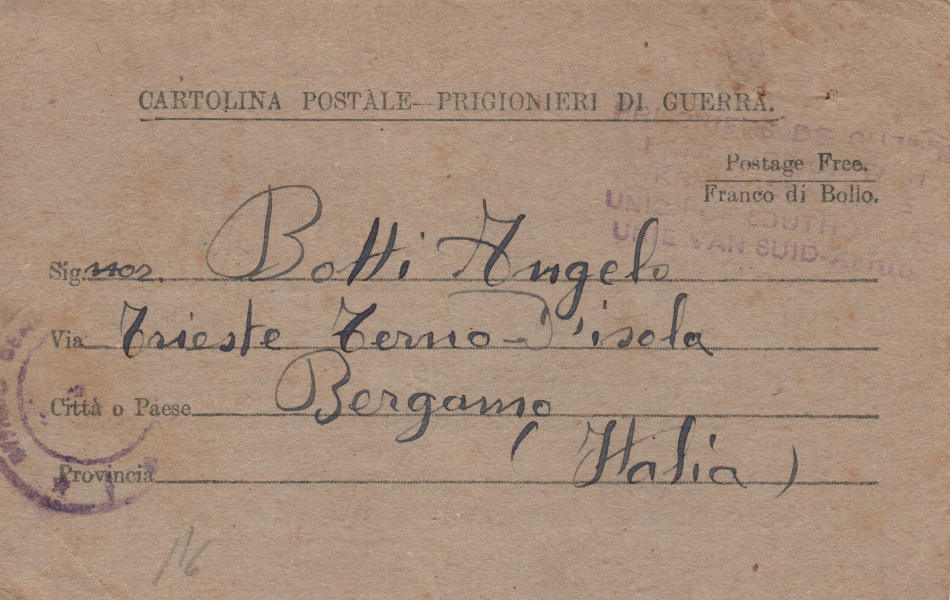 CARTOLINA POSTALE—PRIGIONIERI DI GUERRA.
Postage Free.
Franco di Bollo.
UNION OF SOUTH
UNIE VAN SUID-AFRIKA
Sig.nor. Botti Angelo
Via Trieste Terno-D'isola
Città o Paese Bergamo
Provincia (Italia)